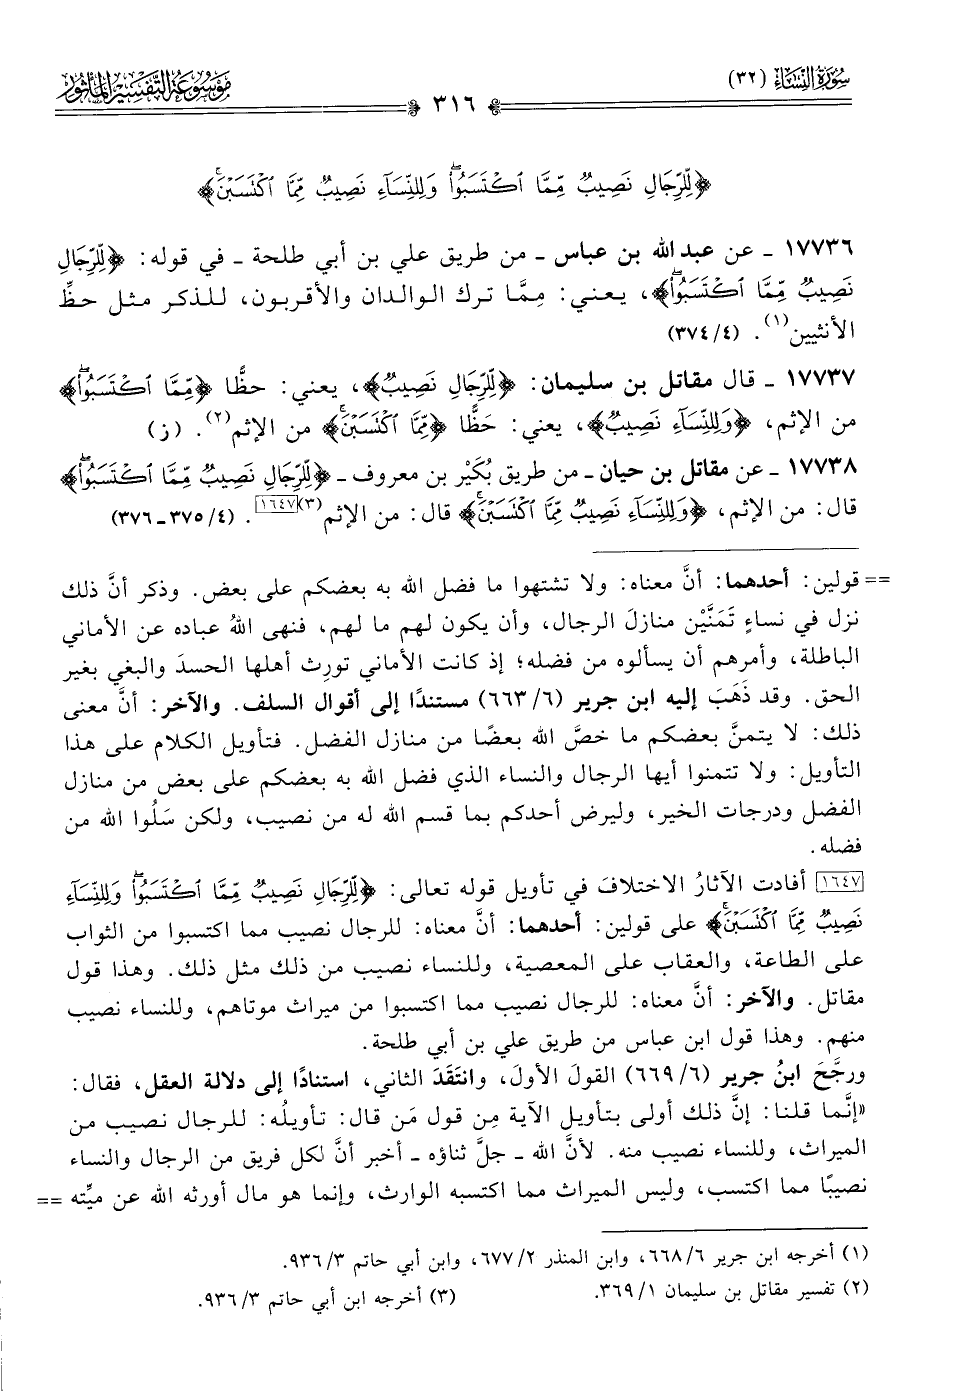 سُورَةُ النِّسَاءِ (٣٢)
مَوْسُوعَةُ التَّفْسِيرِ المَأْثُور
٣١٦
﴿لِّلرِّجَالِ نَصِيبٌ مِّمَّا ٱكْتَسَبُوا۟ۖ وَلِلنِّسَآءِ نَصِيبٌ مِّمَّا ٱكْتَسَبْنَۚ﴾
١٧٧٣٦ ـ عن عبد الله بن عباس ـ من طريق علي بن أبي طلحة ـ في قوله: ﴿لِّلرِّجَالِ
نَصِيبٌ مِّمَّا ٱكْتَسَبُوا۟ۖ﴾، يعني: مِمَّا ترك الوالدان والأقربون، للذكر مثل حظِّ
الأنثيين(١). (٤/ ٣٧٤)
١٧٧٣٧ ـ قال مقاتل بن سليمان: ﴿لِّلرِّجَالِ نَصِيبٌ﴾، يعني: حظًّا ﴿مِّمَّا ٱكْتَسَبُوا۟ۖ﴾
من الإثم، ﴿وَلِلنِّسَآءِ نَصِيبٌ﴾، يعني: حَظًّا ﴿مِّمَّا ٱكْتَسَبْنَۚ﴾ من الإثم(٢). (ز)
١٧٧٣٨ ـ عن مقاتل بن حيان ـ من طريق بُكَيْر بن معروف ـ ﴿لِّلرِّجَالِ نَصِيبٌ مِّمَّا ٱكْتَسَبُوا۟ۖ﴾
قال: من الإثم، ﴿وَلِلنِّسَآءِ نَصِيبٌ مِّمَّا ٱكْتَسَبْنَۚ﴾ قال: من الإثم(٣)[١٦٤٧]. (٤/ ٣٧٥ ـ ٣٧٦)
== قولين: أحدهما: أنَّ معناه: ولا تشتهوا ما فضل الله به بعضكم على بعض. وذكر أنَّ ذلك
نزل في نساءٍ تَمَنَّيْن منازلَ الرجال، وأن يكون لهم ما لهم، فنهى اللهُ عباده عن الأماني
الباطلة، وأمرهم أن يسألوه من فضله؛ إذ كانت الأماني تورِث أهلها الحسدَ والبغي بغير
الحق. وقد ذَهَبَ إليه ابن جرير (٦/ ٦٦٣) مستندًا إلى أقوال السلف. والآخر: أنَّ معنى
ذلك: لا يتمنَّ بعضكم ما خصَّ الله بعضًا من منازل الفضل. فتأويل الكلام على هذا
التأويل: ولا تتمنوا أيها الرجال والنساء الذي فضل الله به بعضكم على بعض من منازل
الفضل ودرجات الخير، وليرض أحدكم بما قسم الله له من نصيب، ولكن سَلُوا الله من
فضله.
[١٦٤٧] أفادت الآثارُ الاختلافَ في تأويل قوله تعالى: ﴿لِّلرِّجَالِ نَصِيبٌ مِّمَّا ٱكْتَسَبُوا۟ۖ وَلِلنِّسَآءِ
نَصِيبٌ مِّمَّا ٱكْتَسَبْنَۚ﴾ على قولين: أحدهما: أنَّ معناه: للرجال نصيب مما اكتسبوا من الثواب
على الطاعة، والعقاب على المعصية، وللنساء نصيب من ذلك مثل ذلك. وهذا قول
مقاتل. والآخر: أنَّ معناه: للرجال نصيب مما اكتسبوا من ميراث موتاهم، وللنساء نصيب
منهم. وهذا قول ابن عباس من طريق علي بن أبي طلحة.
ورجَّحَ ابنُ جرير (٦/ ٦٦٩) القولَ الأولَ، وانتَقَدَ الثاني، استنادًا إلى دلالة العقل، فقال:
«إنَّما قلنا: إنَّ ذلك أولى بتأويل الآية مِن قول مَن قال: تأويلُه: للرجال نصيب من
الميراث، وللنساء نصيب منه. لأنَّ الله ـ جلَّ ثناؤه ـ أخبر أنَّ لكل فريق من الرجال والنساء
نصيبًا مما اكتسب، وليس الميراث مما اكتسبه الوارث، وإنما هو مال أورثه الله عن ميِّته ==
(١) أخرجه ابن جرير ٦/ ٦٦٨، وابن المنذر ٢/ ٦٧٧، وابن أبي حاتم ٣/ ٩٣٦.
(٢) تفسير مقاتل بن سليمان ١/ ٣٦٩. (٣) أخرجه ابن أبي حاتم ٣/ ٩٣٦.